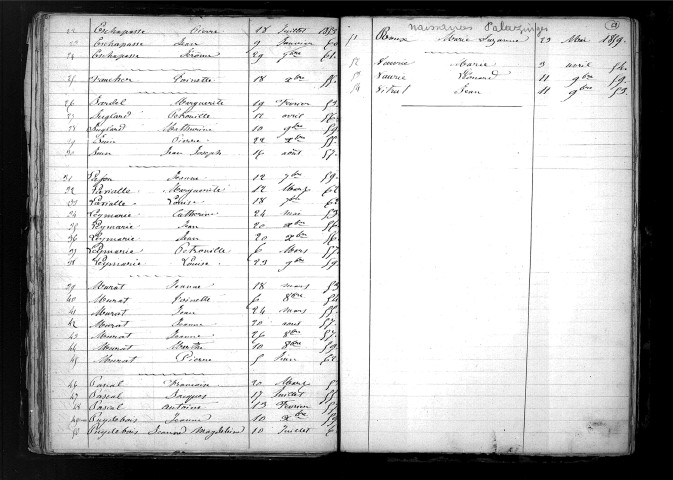 22 Eschapasse Pierre 18 Juillet
23 Eschapasse Jean 9 Janvier 60
24 Eschapasse Jérôme 29 7bre 61.
25 Faucher Toinette 18 Xbre 55.
26 Jardel Marguerite 19 Février 53.
27 Jugland Pétronille 12 avril 56.
28 Jugland Mathurine 10 9bre 59.
29 Pierre 22 Xbre 55.
30 Jean Joseph 16 août 57.
31 Jeanne 12 7bre 59.
32 Marguerite 12 Mars 62
33 Louise 18 7bre 62
34 Leymarie Catherine 24 mai 53
35 Leymarie Jean 20 Xbre 56
36 Leymarie Jean 20 Xbre 56.
37 Leymarie Pétronille 6 Mars 57
38 Leymarie Louise 23 9bre 59.
39 Murat Jeanne 18 mars 53
40 Murat Toinette 6 8bre 54
41 Murat Jean 24 mars 55.
42 Murat Jeanne 20 août 57.
43 Murat Jeanne 26 8bre 57.
44 Murat Marthe 10 8bre 59.
45 Murat Pierre 5 Juin 62.
46 Pascal François 20 Mars
47 Pascal Jacques 17 Juillet 55
48 Pascal Antoine 13 Février
49 Puydebois Jeanne 10 Xbre 59
50 Puydebois Jeanne Magdeleine 10 Juillet 6
naissances Palazinges
51 Marie Suzanne 23 Mai 1859.
52 Marie 3 avril 56.
53 Léonard 11 9bre 59.
54 Vitrat Jean 11 9bre 53.